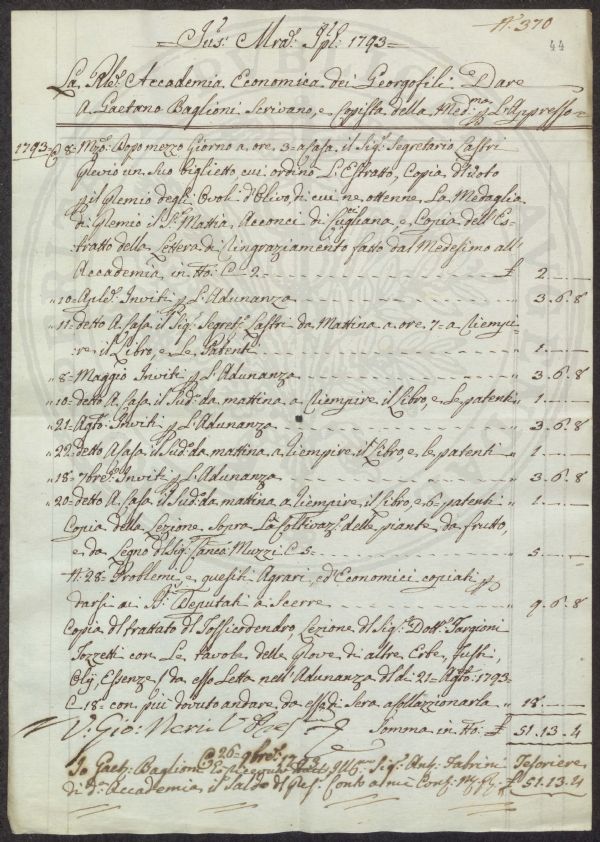 N.° 370
44
1793
La Rle. Accademia Economica dei Georgofili Dare
A Gaetano Baglioni Scrivano, e Copista della Med.ma p L'Appresso
1793 8 Mzo. Dopo mezzo Giorno a ore 3 a Casa il Sigr. Segretario Lastri
un Suo biglietto, cui ordinò L'Estratto, Copia di Voto
p il Premio degli Ovoli d'Olivo, di cui ne ottenne La Medaglia
di Premio il Sr. Mattia Acconci di Cugliana, e Copia dell'Es-
tratto della Lettera di Ringraziamento fatto dal Medesimo all'
Accademia in tto. C. 2 £ 2
" 10 Aple. Inviti p L'Adunanza " 3. 6. 8
" 11 detto A Casa il Sigr. Segret. Lastri da Mattina a ore 7 a Riempi-
re il Libro, e Le Patenti " 1
" 8 Maggio Inviti p L'Adunanza " 3. 6. 8
" 10 detto A Casa il Sud.° da mattina a Riempire il Libro, e le patenti " 1
" 21 Agto. Inviti p L'Adunanza " 3. 6. 8
" 22 detto A Casa il Sud.° da mattina a Riempire il Libro, e le patenti " 1
" 18 7bre. Inviti p L'Adunanza " 3. 6. 8
" 20 detto A Casa il Sud.° da mattina a Riempire il Libro, e 6 patenti " 1
Copia della Lezione Sopra La Coltivaz.e delle piante da frutto,
e da Legno dl Sigr. Canco. Muzzi C. 5 " 5
N. 28 Problemi, e quesiti Agrari, ed Economici copiati p
darsi a Sri. Deputati a Scerre " 9. 6. 8
Copia dl trattato dl Tossicodendro, Lezione dl Sigr. Dott. Targioni
Tozzetti con Le tavole delle Prove di altre Erbe, frutti,
Olj, Essenze / da esso Letta nell'Adunanza dl dì 21 Agto. 1793
C. 18 con più dovuto andare da esso di Sera a collazzionarla " 18
V. Gio: Neri Somma in tto. £ 51. 13. 4
26 9bre. 1793
Io Gaet. Baglioni Sigr. Ant. Fabrini Tesoriere
di d.a Accademia il Saldo dl Pres. Conto £ 51. 13. 4